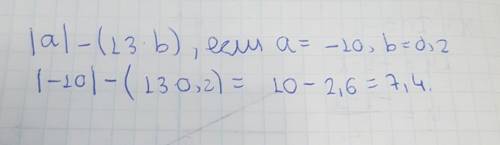 |a| - (13 · b), если a = -10, b = 0,2
|-10| - (13 0,2) = 10 - 2,6 = 7,4.